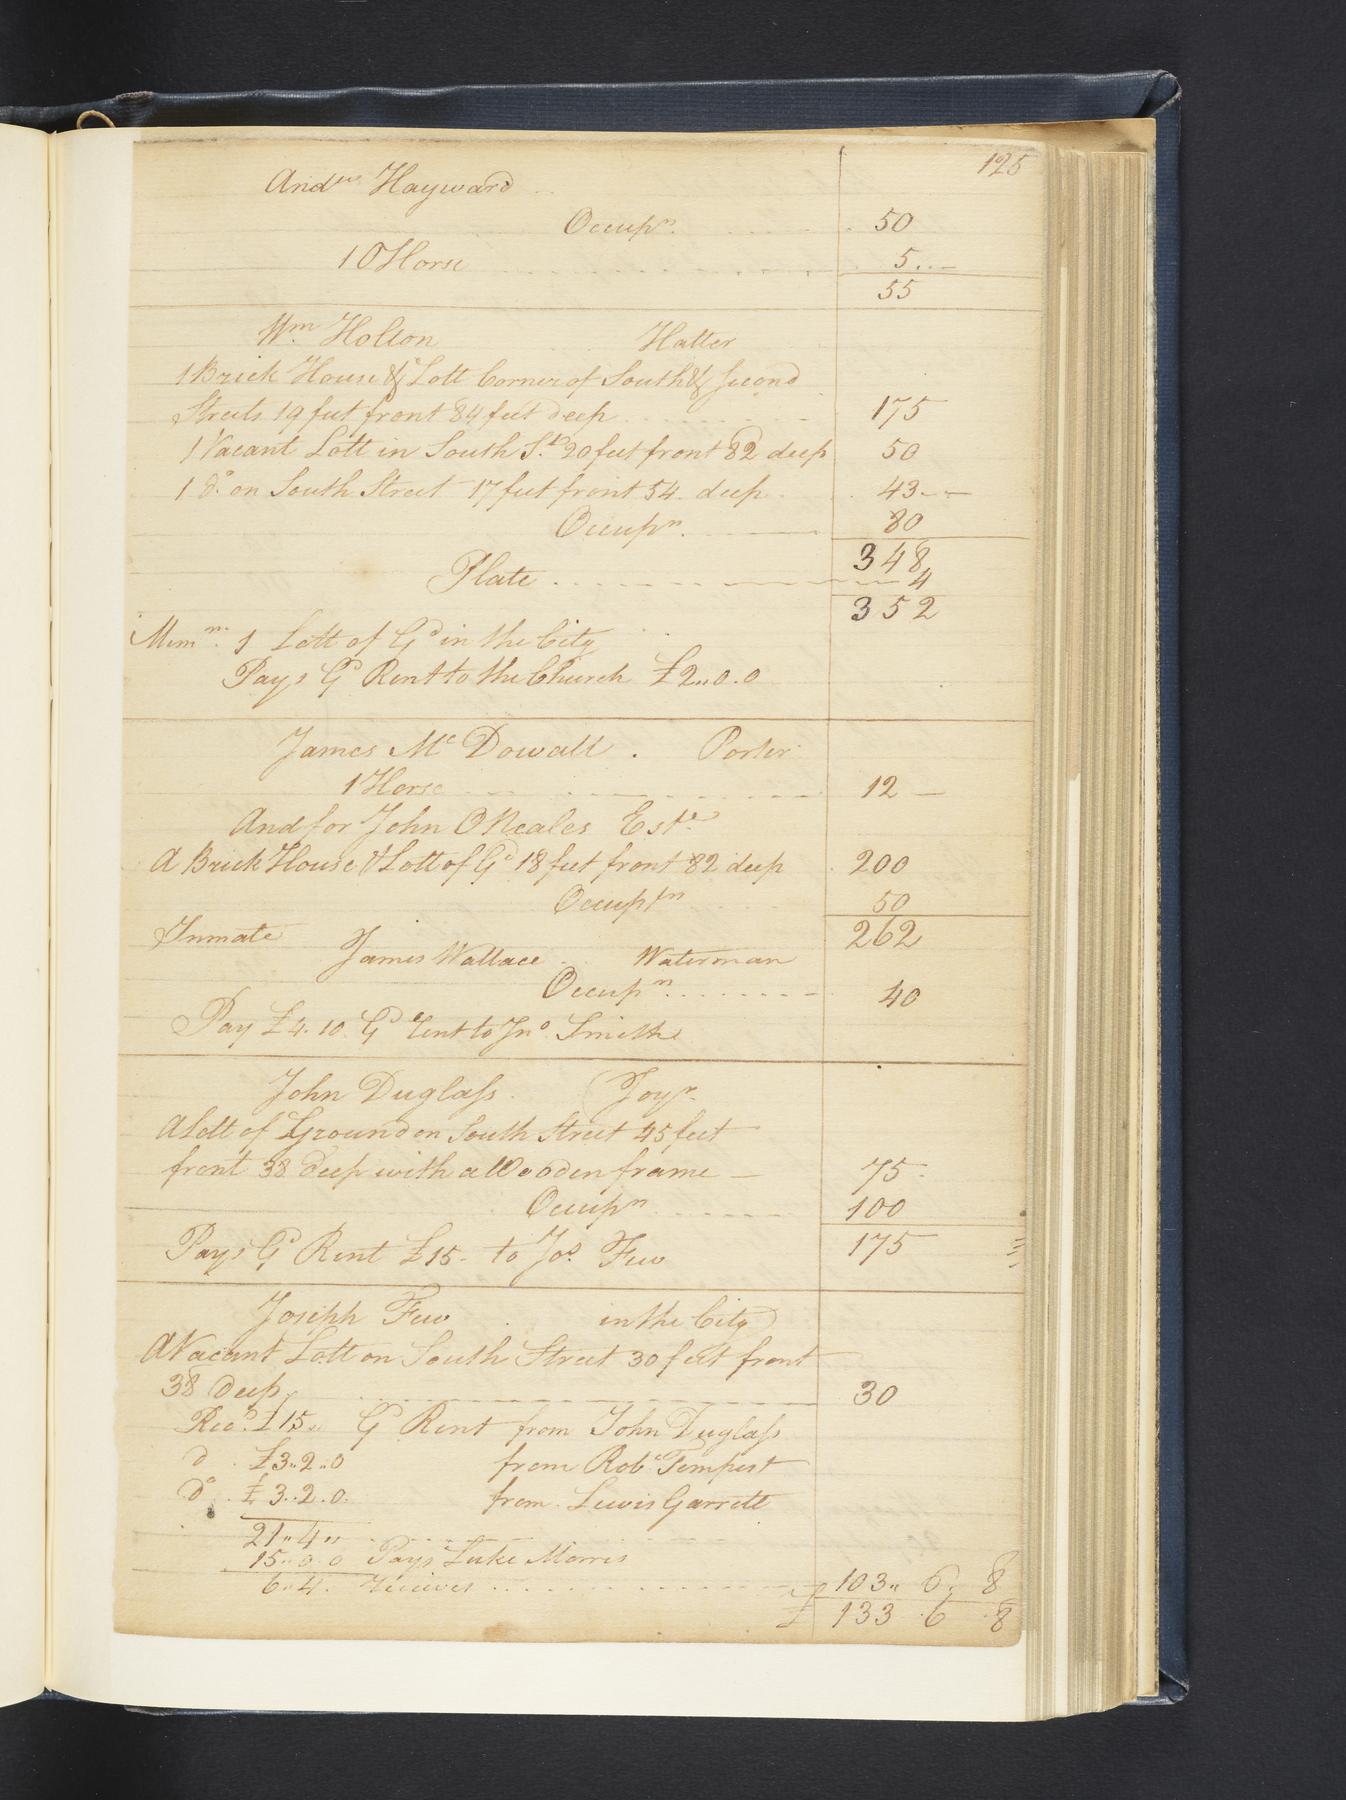 125
Andw Hayward
Occupn. 50
1 Horse 5
55
Wm. Holton Hatter
1 Brick House & Lott Corner of South & Second
Streets 19 feet front 84 feet deep 175
1 Vacant Lott in South St. 20 feet front 82 deep 50
1 do. on South Street 17 feet front 54 deep 43
Occupn. 80
348
Plate 4
352
Memm. 1 Lott of Gd in the City
Pays Gd Rent to the Church £2..0.0
James McDowall. Porter
1 Horse 12
And for John ONeales Este
A Brick House & Lott of Gd 18 feet front 82 deep 200
Occuptn 50
Inmate 262
James Wallace Waterman
Occupn 40
Pay £4.10 Gd rent to Jno Smith
John Duglass Joyr
A Lott of Ground on South Street 45 feet
front 38 deep with a Wooden frame 75
Occupn 100
Pays Gd Rent £15 to Jos. Few 175
Joseph Few in the City
A Vacant Lott on South Street 30 feet front
38 Deep 30
Recd. £15.. Gd Rent from John Duglass
d £3..2..0 from Robt Tempest
Do. £3..2.0. from Lewis Garrett
21..4..
15..0.0 Pays Luke Morris
6..4. receives 103.. 6. 8
£ 133 .6 .8